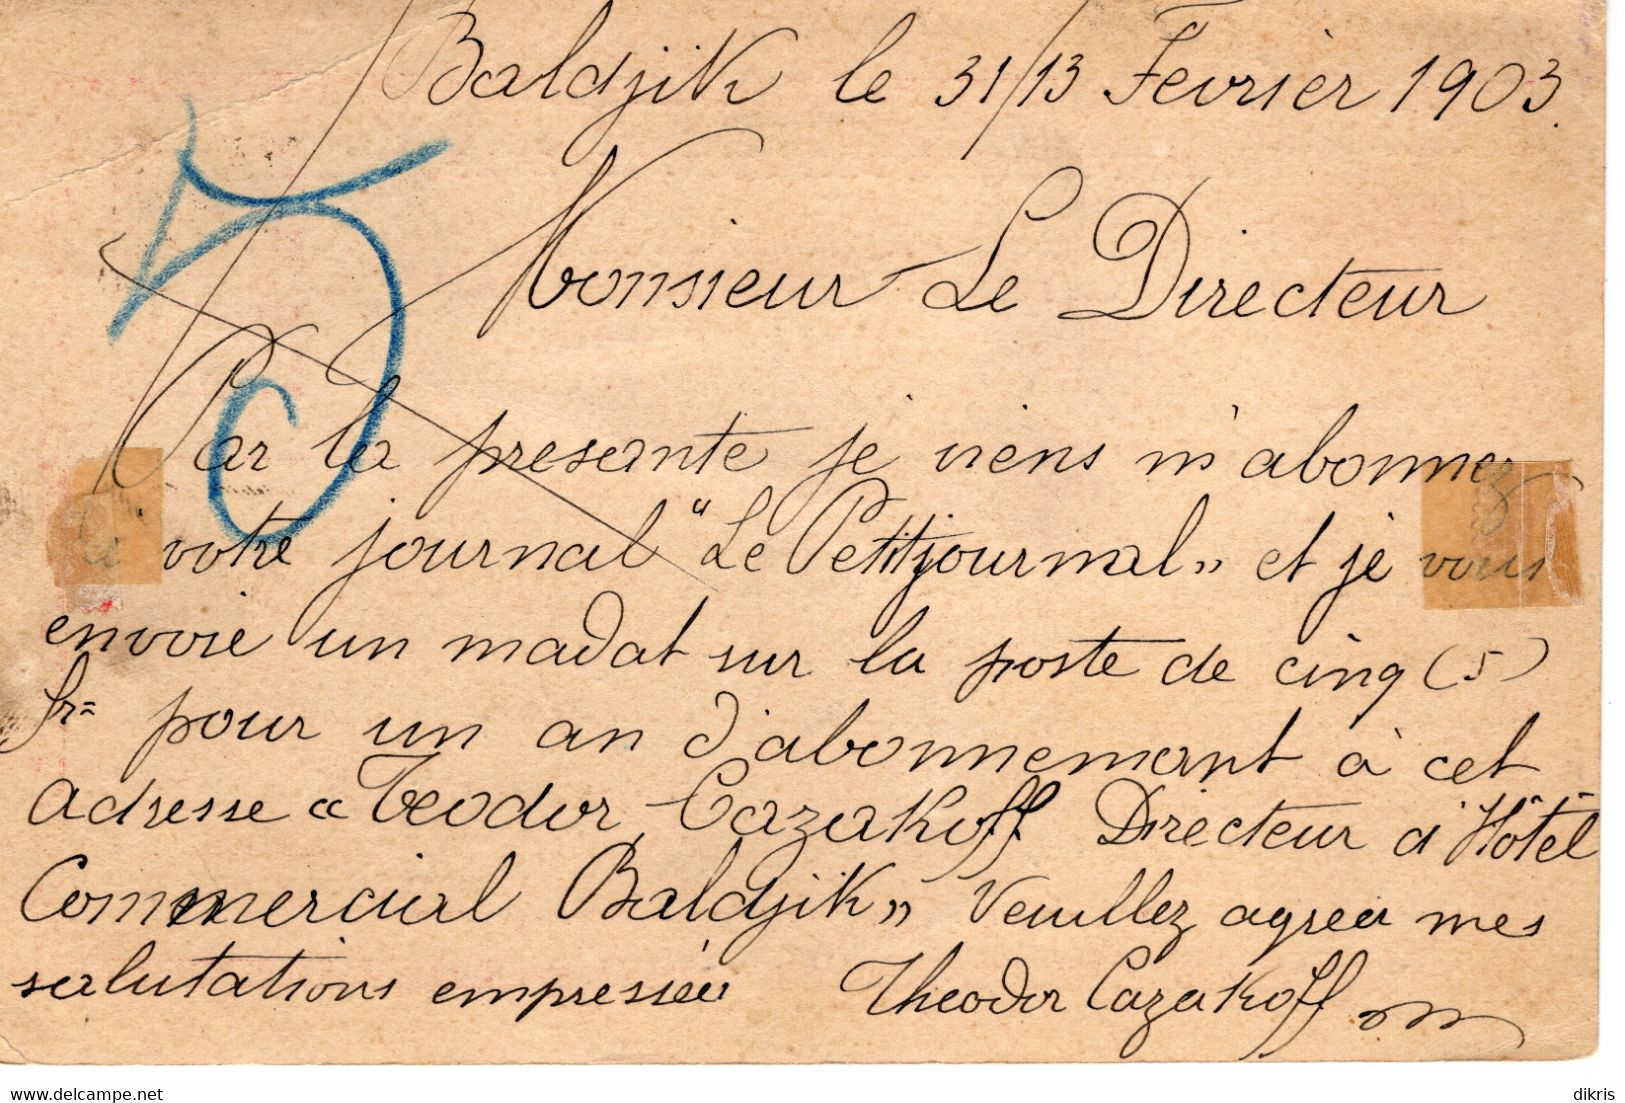 Baldjik le 31/13 Fevrièr 1903.
Monsieur Le Directeur
Par la presente je viens m'abonner
à votre journal "Le Petitjournal" et je vous
envoie un madat sur la poste de cinq (5)
fr= pour un an d'abonnement à cet
adresse "Teodor Cazakoff Directeur d'Hôtel
Commercial Baldjik" Veuillez agreer mes
salutations empressées Theodor Cazakoff
delcampe.net
dikris